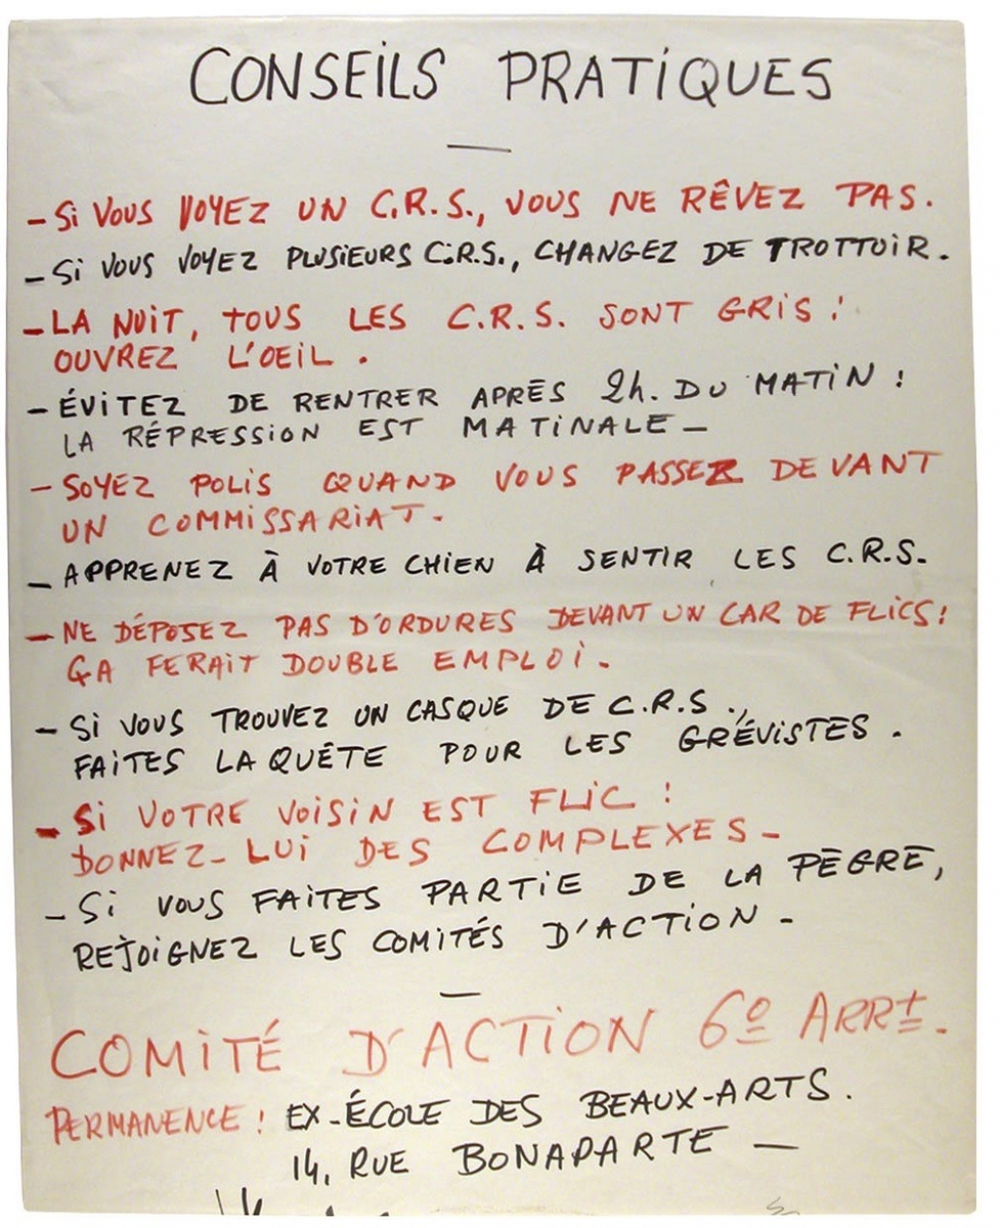 CONSEILS PRATIQUES
—
- SI VOUS VOYEZ UN C.R.S., VOUS NE RÊVEZ PAS.
- SI VOUS VOYEZ PLUSIEURS C.R.S., CHANGEZ DE TROTTOIR.
- LA NUIT, TOUS LES C.R.S. SONT GRIS :
OUVREZ L'OEIL.
- ÉVITEZ DE RENTRER APRÈS 2h. DU MATIN :
LA RÉPRESSION EST MATINALE -
- SOYEZ POLIS QUAND VOUS PASSEZ DEVANT
UN COMMISSARIAT.
- APPRENEZ À VOTRE CHIEN À SENTIR LES C.R.S.
- NE DÉPOSEZ PAS D'ORDURES DEVANT UN CAR DE FLICS :
ÇA FERAIT DOUBLE EMPLOI.
- SI VOUS TROUVEZ UN CASQUE DE C.R.S.,
FAITES LA QUÊTE POUR LES GRÉVISTES.
- SI VOTRE VOISIN EST FLIC :
DONNEZ-LUI DES COMPLEXES -
- SI VOUS FAITES PARTIE DE LA PÈGRE,
REJOIGNEZ LES COMITÉS D'ACTION -
—
COMITÉ D'ACTION 6º ARRt.
PERMANENCE : EX-ÉCOLE DES BEAUX-ARTS.
14, RUE BONAPARTE —